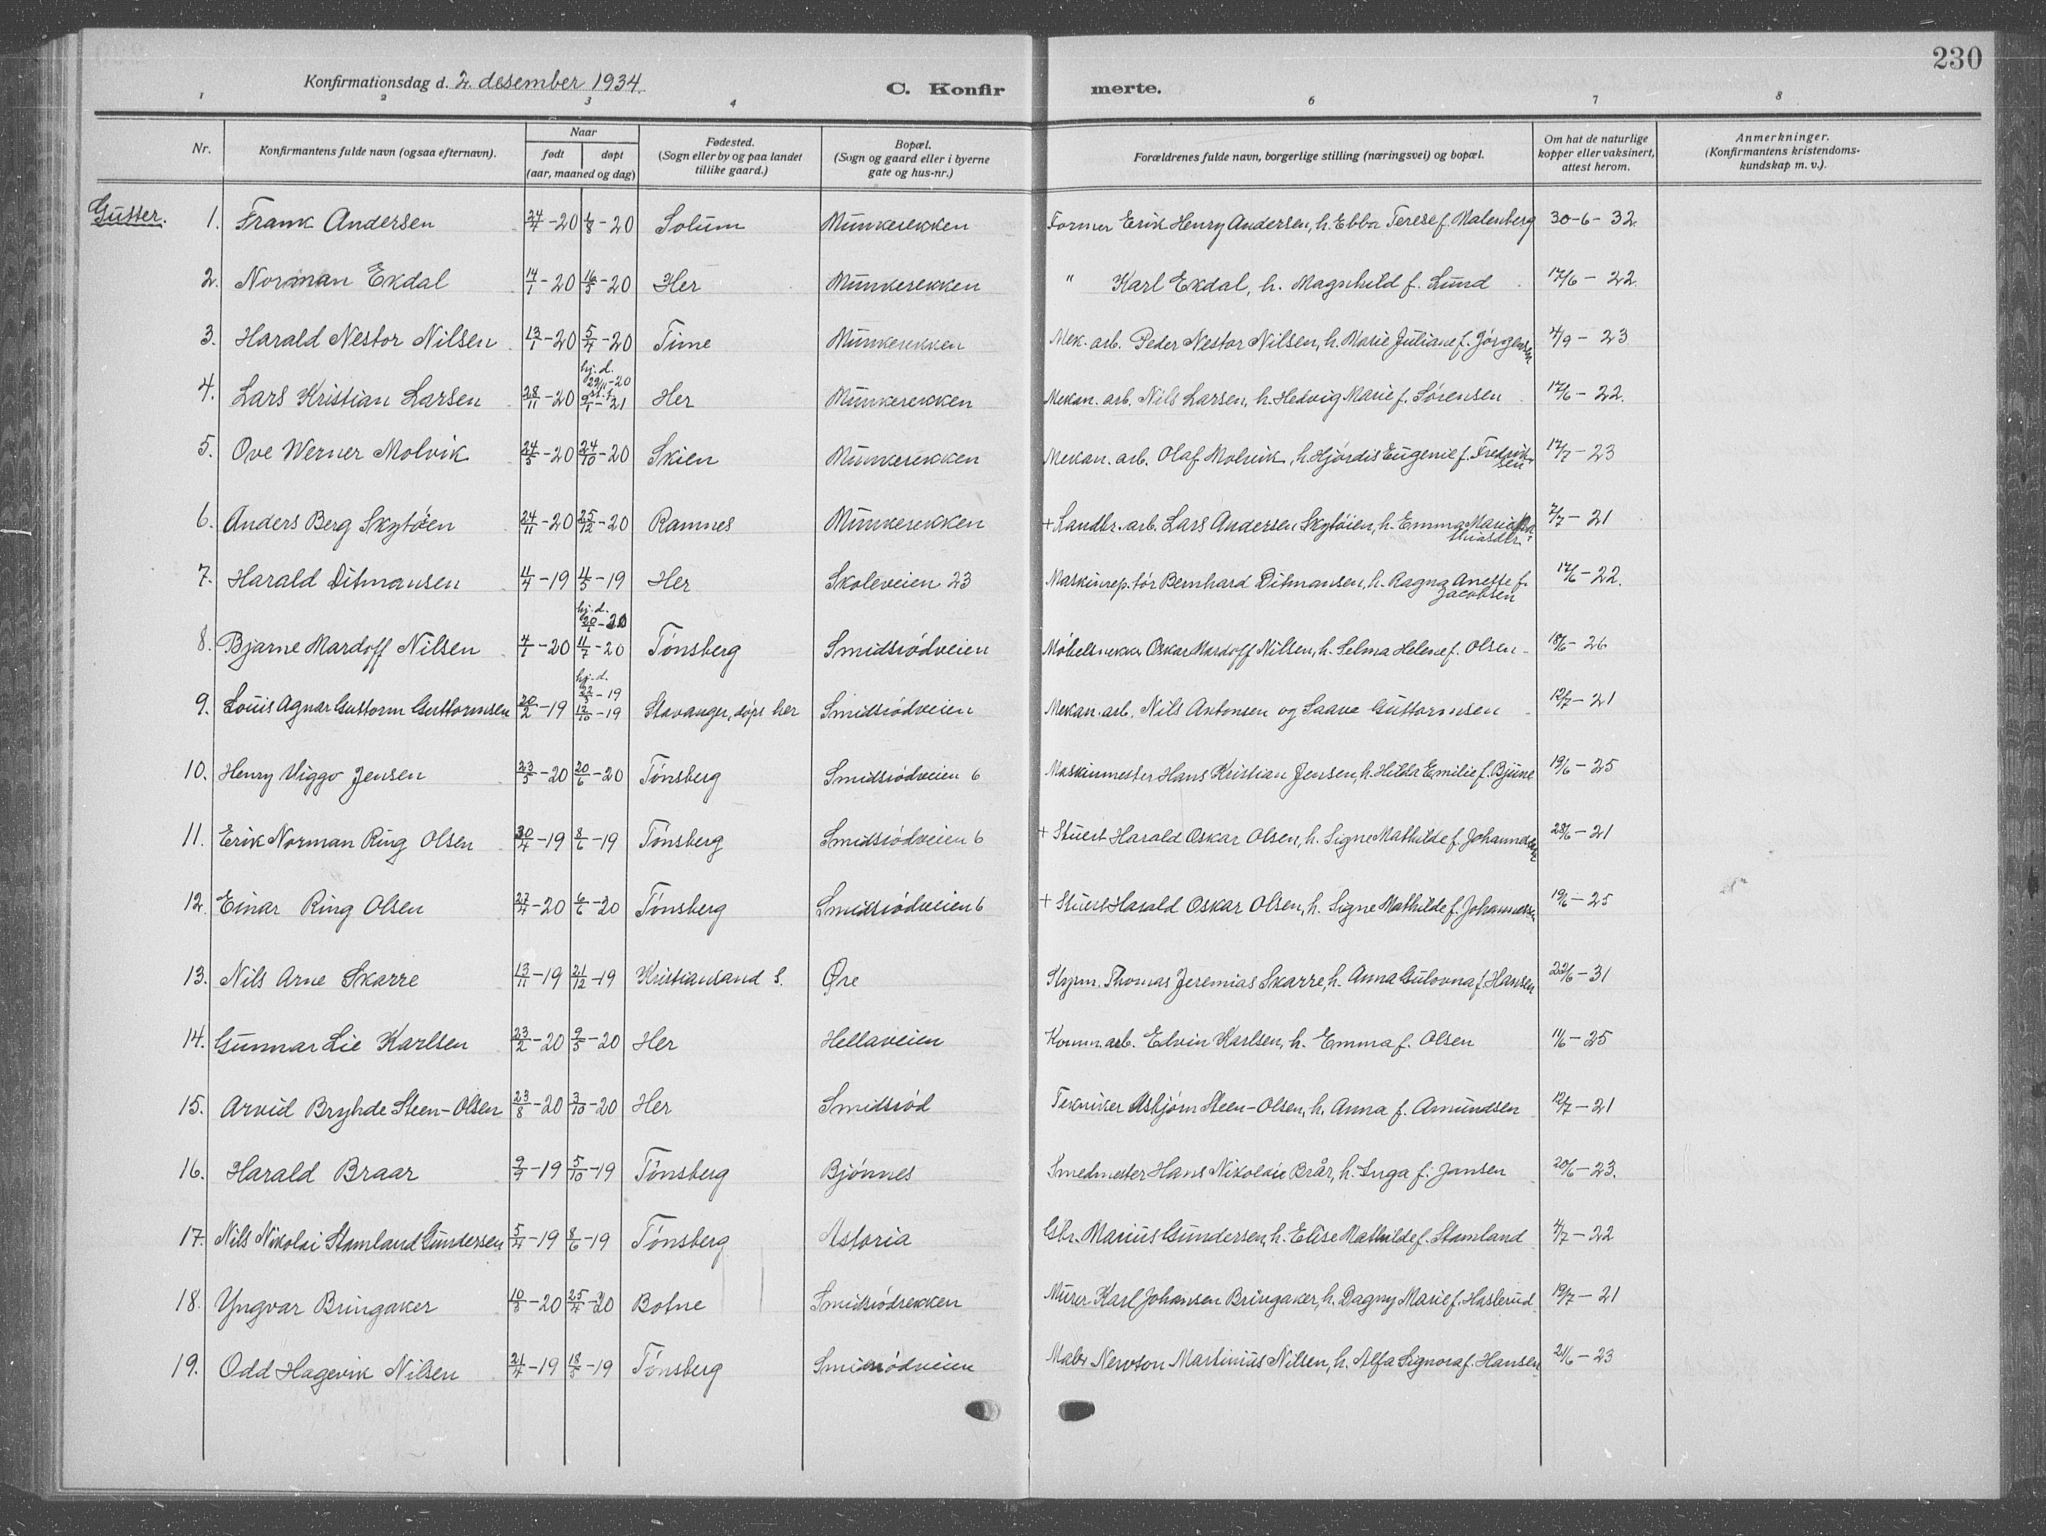 230
Konfirmationsdag d. 2. desember 1934.
C. Konfir merte.
1 2 3 4 6 7 8
Nr. Konfirmantens fulde navn (ogsaa efternavn). Naar født døpt (aar, maaned og dag) Fødested. (Sogn eller by og paa landet tillike gaard.) Bopæl. (Sogn og gaard eller i byerne gate og hus-nr.) Forældrenes fulde navn, borgerlige stilling (næringsvei) og bopæl. Om hat de naturlige kopper eller vaksinert, attest herom. Anmerkninger. (Konfirmantens kristendoms-kundskap m. v.).
Gutter.
1. Frank Andersen 24/4-20 1/8-20 Solum Munkerekken Former Erik Henry Andersen, h. Ebba Terese f. Malmberg 30-6-32.
2. Norman Ekdal 14/1-20 16/5-20 Her Munkerekken " Karl Ekdal, h. Magnhild f. Lund 17/6-22.
3. Harald Nestor Nilsen 13/1-20 5/4-20 Time Munkerekken Mek. arb. Peder Nestor Nilsen, h. Marie Juliane f. Jørgensen 4/9-23
4. Lars Kristian Larsen 28/11-20 hj. d. 29/11-20 9/1-21 Her Munkerekken Mekan. arb. Nils Larsen, h. Hedvig Marie f. Sørensen 17/6-22.
5. Ove Werner Molvik 24/5-20 24/10-20 Skien Munkerekken Mekan. arb. Olaf Molvik, h. Hjørdis Eugenie f. Fredriksen 17/7-23
6. Anders Berg Skytøen 24/11-20 25/12-20 Ramnes Munkerekken + Landbr. arb. Lars Andersen Skytøien, h. Emma Marie 7/7-21
7. Harald Ditmansen 11/4-19 4/5-19 Her Skoleveien 23 Maskinrep.tør Bernhard Ditmansen, h. Ragna Anette f. Jacobsen 17/6-22.
8. Bjarne Mardoff Nilsen 4/1-20 hj. d. 20/1-20 11/7-20 Tønsberg Smidsrødveien Møbelsnekker Oskar Mardoff Nilsen, h. Selma Helene f. Olsen 18/6-26
9. Louis Agnar Guttorm Guttormsen 20/2-19 hj. d. 22/3-19 12/10-19 Stavanger, døpt her Smidsrødveien Mekan. arb. Nils Antonsen og Saave Guttormsen 12/7-21
10. Henry Viggo Jensen 23/5-20 20/6-20 Tønsberg Smidsrødveien 6 Maskinmester Hans Kristian Jensen, h. Hilda Emilie f. Bjune 19/6-25
11. Erik Norman Ring Olsen 30/4-19 8/6-19 Tønsberg Smidsrødveien 6 + Stuert Harald Oskar Olsen, h. Signe Mathilde f. Johannessen 28/6-21
12. Einar Ring Olsen 27/4-20 6/6-20 Tønsberg Smidsrødveien 6 + Stuert Harald Oskar Olsen, h. Signe Mathilde f. Johannessen 19/6-25
13. Nils Arne Skarre 13/11-19 21/12-19 Kristiansand S. Øre Thomas Jeremias Skarre, h. Anna Gulovna f. Hansen 22/6-31
14. Gunnar Lie Karlsen 23/2-20 9/5-20 Her Hellaveien Komm. arb. Edvin Karlsen, h. Emma f. Olsen 11/6-25
15. Arvid Bryhde Steen-Olsen 23/8-20 3/10-20 Her Smidsrød Tekniker Asbjørn Steen-Olsen, h. Anna f. Amundsen 12/7-21
16. Harald Braar 9/9-19 5/10-19 Tønsberg Bjønnes Smedmester Hans Nikolaie Brår, h. Inga f. Jansen 20/6-23.
17. Nils Nikolai Stamland Gundersen 5/4-19 8/6-19 Tønsberg Astoria Gbr. Marius Gundersen, h. Elise Mathilde f. Stamland 4/7-22
18. Yngvar Bringaker 10/3-20 25/4-20 Botne Smidsrødrekken Murer Karl Johansen Bringaker, h. Dagny Marie f. Haslerud 19/7-21
19. Odd Hagevik Nilsen 21/4-19 18/5-19 Tønsberg Smidsrødveien Maler Newton Martinius Nilsen, h. Alfa Signora f. Hansen 21/6-23